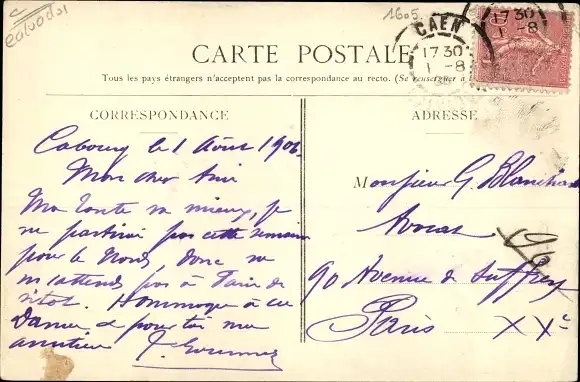 calvados
1605.
CAEN
17 30
1 -8
CAEN
17 30
1 -8
CARTE POSTALE
Tous les pays étrangers n'acceptent pas la correspondance au recto. (Se renseigner à
CORRESPONDANCE
ADRESSE
Cabourg le 1 Août 190
Mon cher Ami
Ma tante va mieux, je
ne partirai pas cette semaine
pour le Nord, donc ne
m'attends pas à Paris de
sitôt. Hommages à ces
Dames, et pour toi mes
amitiés
Monsieur G.
Avocat
90 Avenue de Suffren
Paris XVe